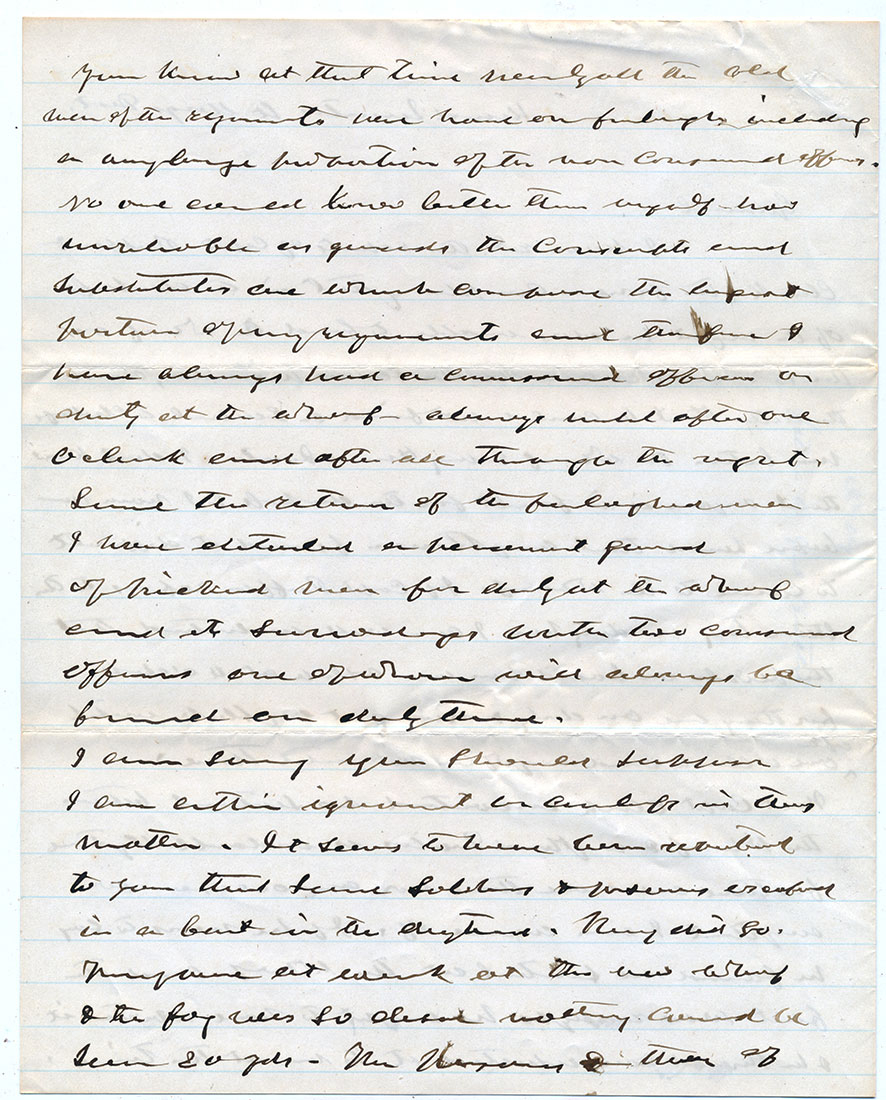 You know at that time nearly all the old
men of the regiments were home on furloughs including
a very large proportion of the non Command officers.
No one could know better than myself how
unreliable as guards the Conscripts and
Substitutes are which compose the largest
portion of my regiments and therefore I
have always had a commissioned officer on
duty at the wharf - always until after one
oclock and often all through the night.
Since the return of the furloughed men
I have detailed a permanent guard
of picked men for duty at the wharf
and its surroundings with two command
officers one of whom will always be
found on duty there.
I am sorry you should suppose
I am either ignorant or careless in this
matter. It seems to have been reported
to you that some Soldiers & prisoners escaped
in a boat in the daytime. They did so.
They were at work at the new wharf
& the fog was so dense nothing could be
seen 20 yds - The Prisoners & three of